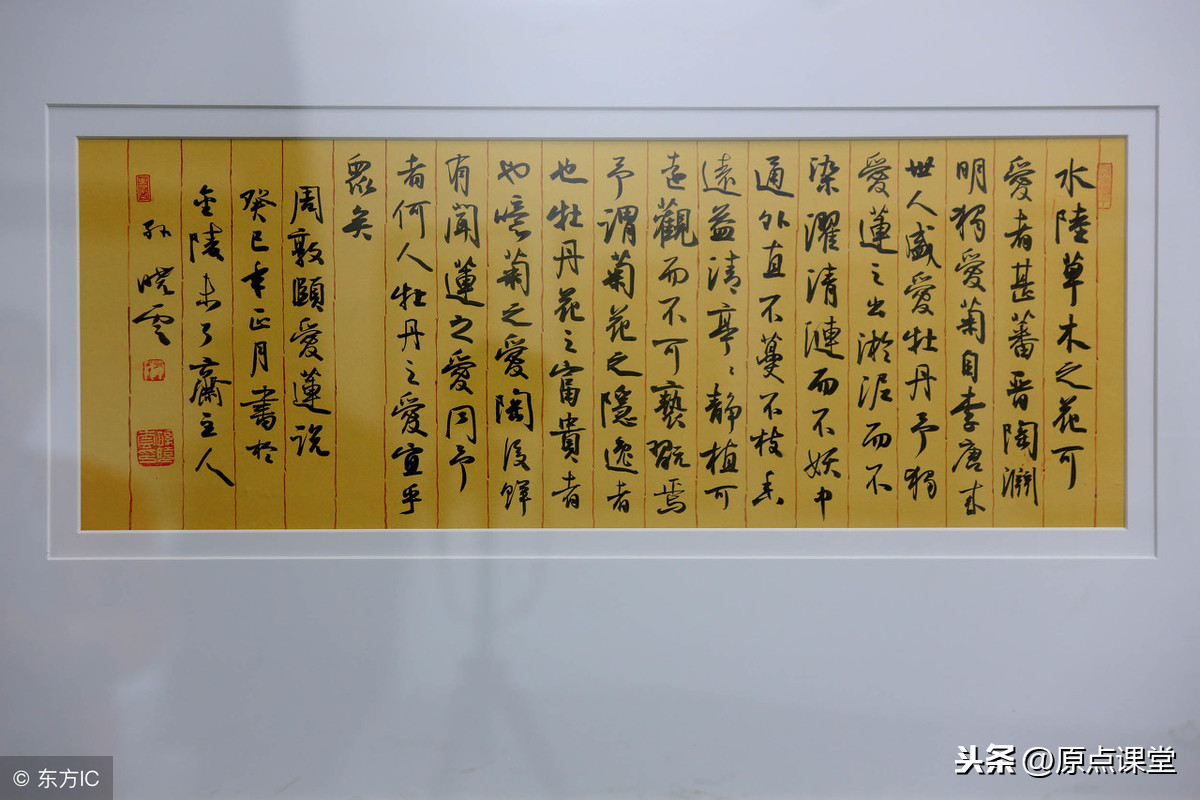 水陸草木之花可
愛者甚蕃晋陶淵
明獨愛菊自李唐来
世人盛愛牡丹予獨
愛蓮之出淤泥而不
染濯清漣而不妖中
通外直不蔓不枝香
遠益清亭〻静植可
遠觀而不可褻翫焉
予謂菊花之隱逸者
也牡丹花之富貴者
也噫菊之愛陶後鮮
有聞蓮之愛同予
者何人牡丹之愛宜乎
眾矣
周敦頤愛蓮説
癸巳年正月書於
金陵未了齋主人
孙曉雲
© 东方IC
头条 @原点课堂